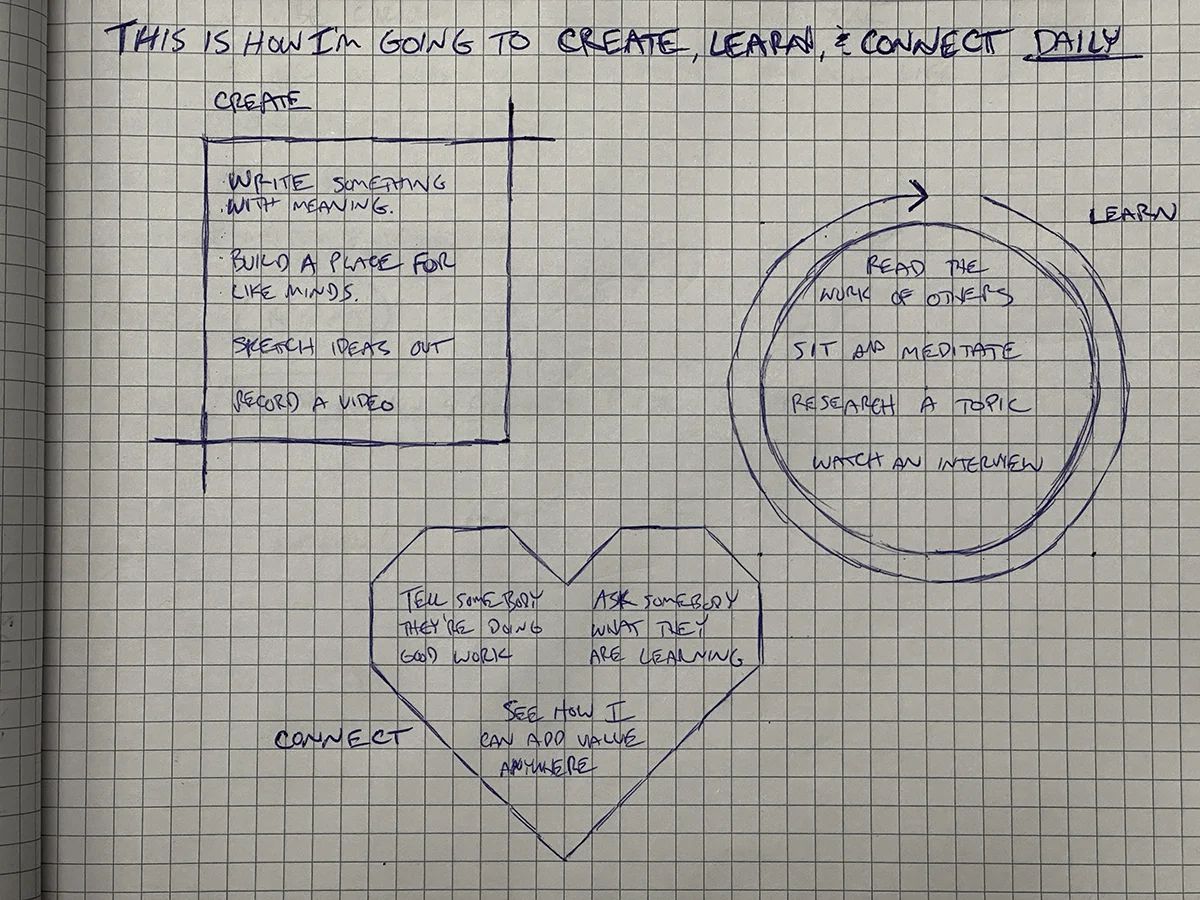 THIS IS HOW I'M GOING TO CREATE, LEARN, & CONNECT DAILY
CREATE
· WRITE SOMETHING
· WITH MEANING.
· BUILD A PLACE FOR
· LIKE MINDS.
SKETCH IDEAS OUT
RECORD A VIDEO
LEARN
READ THE
WORK OF OTHERS
SIT AND MEDITATE
RESEARCH A TOPIC
WATCH AN INTERVIEW
TELL SOMEBODY
THEY'RE DOING
GOOD WORK
ASK SOMEBODY
WHAT THEY
ARE LEARNING
SEE HOW I
CAN ADD VALUE
ANYWHERE
CONNECT